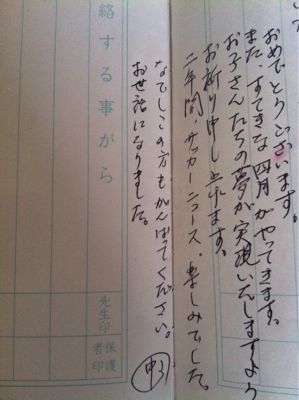 おめでとうございます。
また、すてきな四月がやってきます。
お子さんたちの夢が実現いたしますよう
お祈り申し上げます。
二年間・サッカーニュース・楽しみでした。
なでしこの方もがんばってください。
お世話になりました。
絡する事がら
先生印
保護者印